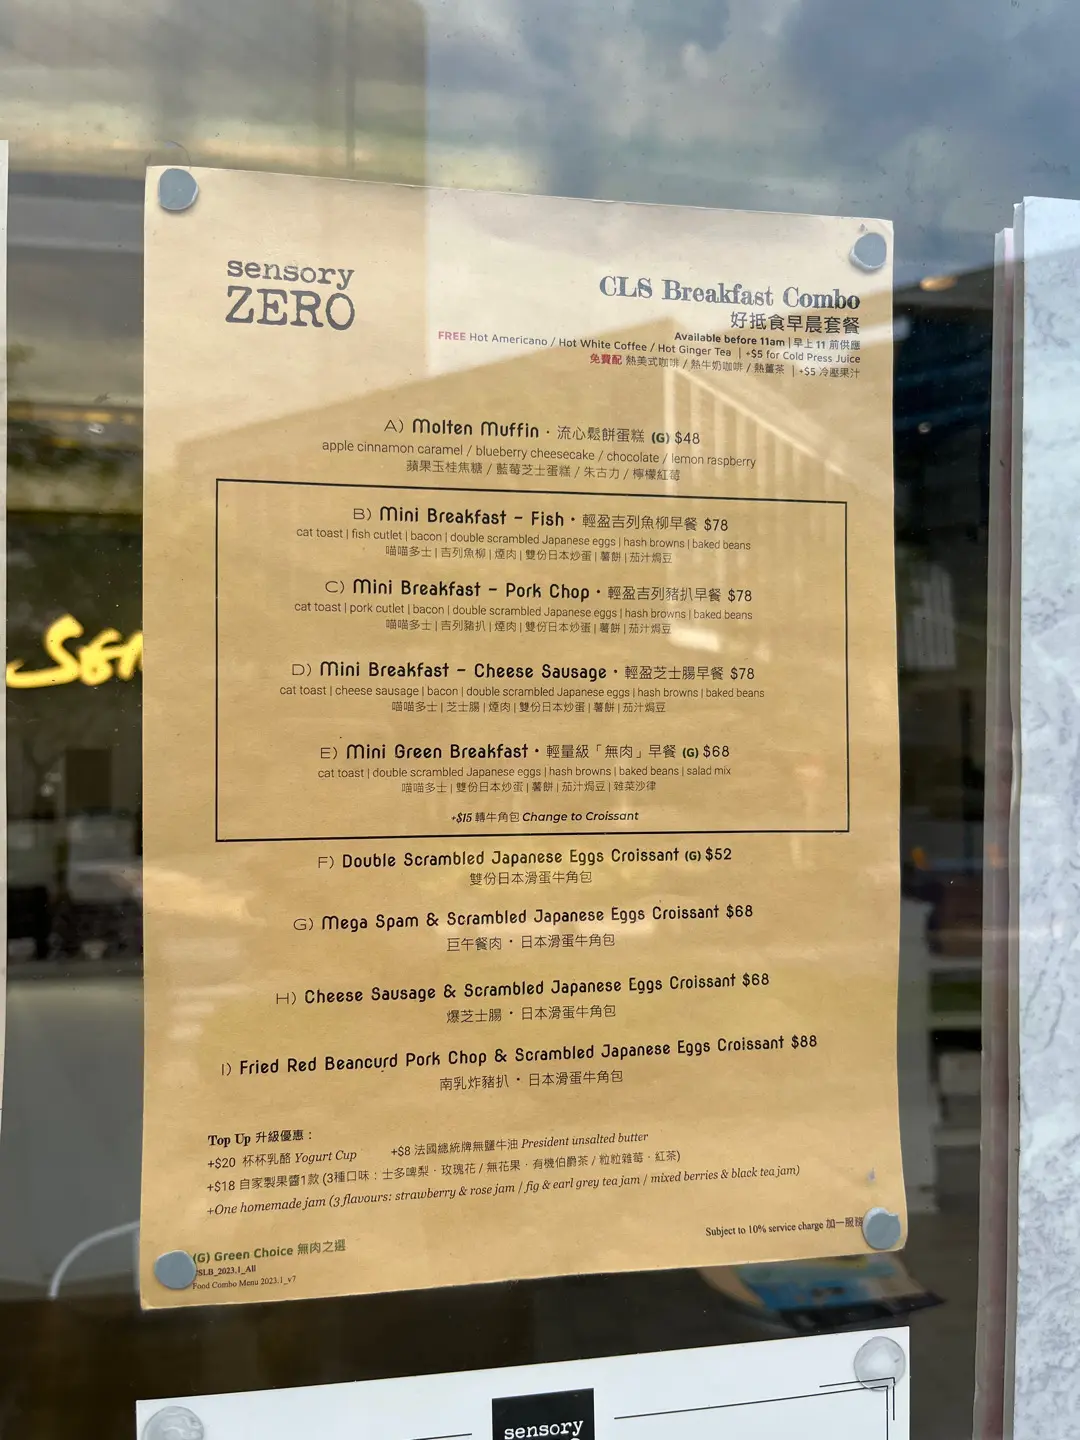 sensory
ZERO
CLS Breakfast Combo
好抵食早晨套餐
Available before 11am | 早上 11 前供應
FREE Hot Americano / Hot White Coffee / Hot Ginger Tea | +$5 for Cold Press Juice
免費配 熱美式咖啡 / 熱牛奶咖啡 / 熱薑茶 | +$5 冷壓果汁
A) Molten Muffin · 流心鬆餅蛋糕 (G) $48
apple cinnamon caramel / blueberry cheesecake / chocolate / lemon raspberry
蘋果玉桂焦糖 / 藍莓芝士蛋糕 / 朱古力 / 檸檬紅莓
B) Mini Breakfast – Fish · 輕盈吉列魚柳早餐 $78
cat toast | fish cutlet | bacon | double scrambled Japanese eggs | hash browns | baked beans
喵喵多士 | 吉列魚柳 | 煙肉 | 雙份日本炒蛋 | 薯餅 | 茄汁焗豆
C) Mini Breakfast – Pork Chop · 輕盈吉列豬扒早餐 $78
cat toast | pork cutlet | bacon | double scrambled Japanese eggs | hash browns | baked beans
喵喵多士 | 吉列豬扒 | 煙肉 | 雙份日本炒蛋 | 薯餅 | 茄汁焗豆
D) Mini Breakfast – Cheese Sausage · 輕盈芝士腸早餐 $78
cat toast | cheese sausage | bacon | double scrambled Japanese eggs | hash browns | baked beans
喵喵多士 | 芝士腸 | 煙肉 | 雙份日本炒蛋 | 薯餅 | 茄汁焗豆
E) Mini Green Breakfast · 輕量級「無肉」早餐 (G) $68
cat toast | double scrambled Japanese eggs | hash browns | baked beans | salad mix
喵喵多士 | 雙份日本炒蛋 | 薯餅 | 茄汁焗豆 | 雜菜沙律
+$15 轉牛角包 Change to Croissant
F) Double Scrambled Japanese Eggs Croissant (G) $52
雙份日本滑蛋牛角包
G) Mega Spam & Scrambled Japanese Eggs Croissant $68
巨午餐肉 · 日本滑蛋牛角包
H) Cheese Sausage & Scrambled Japanese Eggs Croissant $68
爆芝士腸 · 日本滑蛋牛角包
I) Fried Red Beancurd Pork Chop & Scrambled Japanese Eggs Croissant $88
南乳炸豬扒 · 日本滑蛋牛角包
Top Up 升級優惠：
+$20 杯杯乳酪 Yogurt Cup +$8 法國總統牌無鹽牛油 President unsalted butter
+$18 自家製果醬1款 (3種口味：士多啤梨 · 玫瑰花 / 無花果 · 有機伯爵茶 / 粒粒雜莓 · 紅茶)
+One homemade jam (3 flavours: strawberry & rose jam / fig & earl grey tea jam / mixed berries & black tea jam)
Subject to 10% service charge 加一服務
(G) Green Choice 無肉之選
SLB_2023.1_All
Food Combo Menu 2023.1_v7
sensory